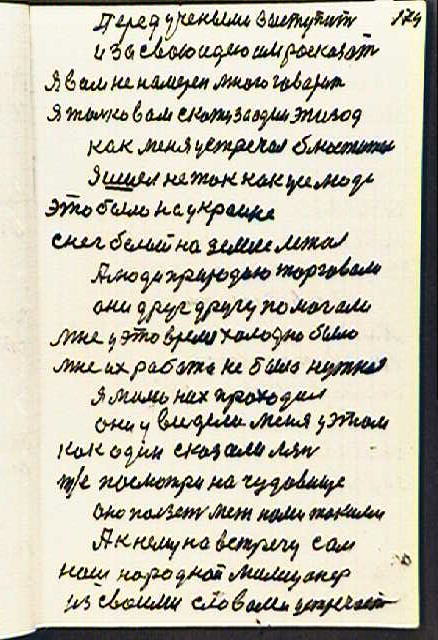 179
Перед учеными выступит
и за свою идею им росказат
Я вам не намерен много говарит
Я толко вам скажу за один эпизод
как меня устречал блюститель
Я шшел не так как усе люди
Это было на украине
снег белый на земле лежал
А люди природою торговали
они друг другу помогали
мне у это время холодно было
мне их работа не была нужна
я мимо них проходил
они увидели меня у этом
как один сказали ляп
те посмотри на чудовище
оно ползет меж нами такими
А к нему на встречу сам
наш народной милицонер
из своими словами устречает